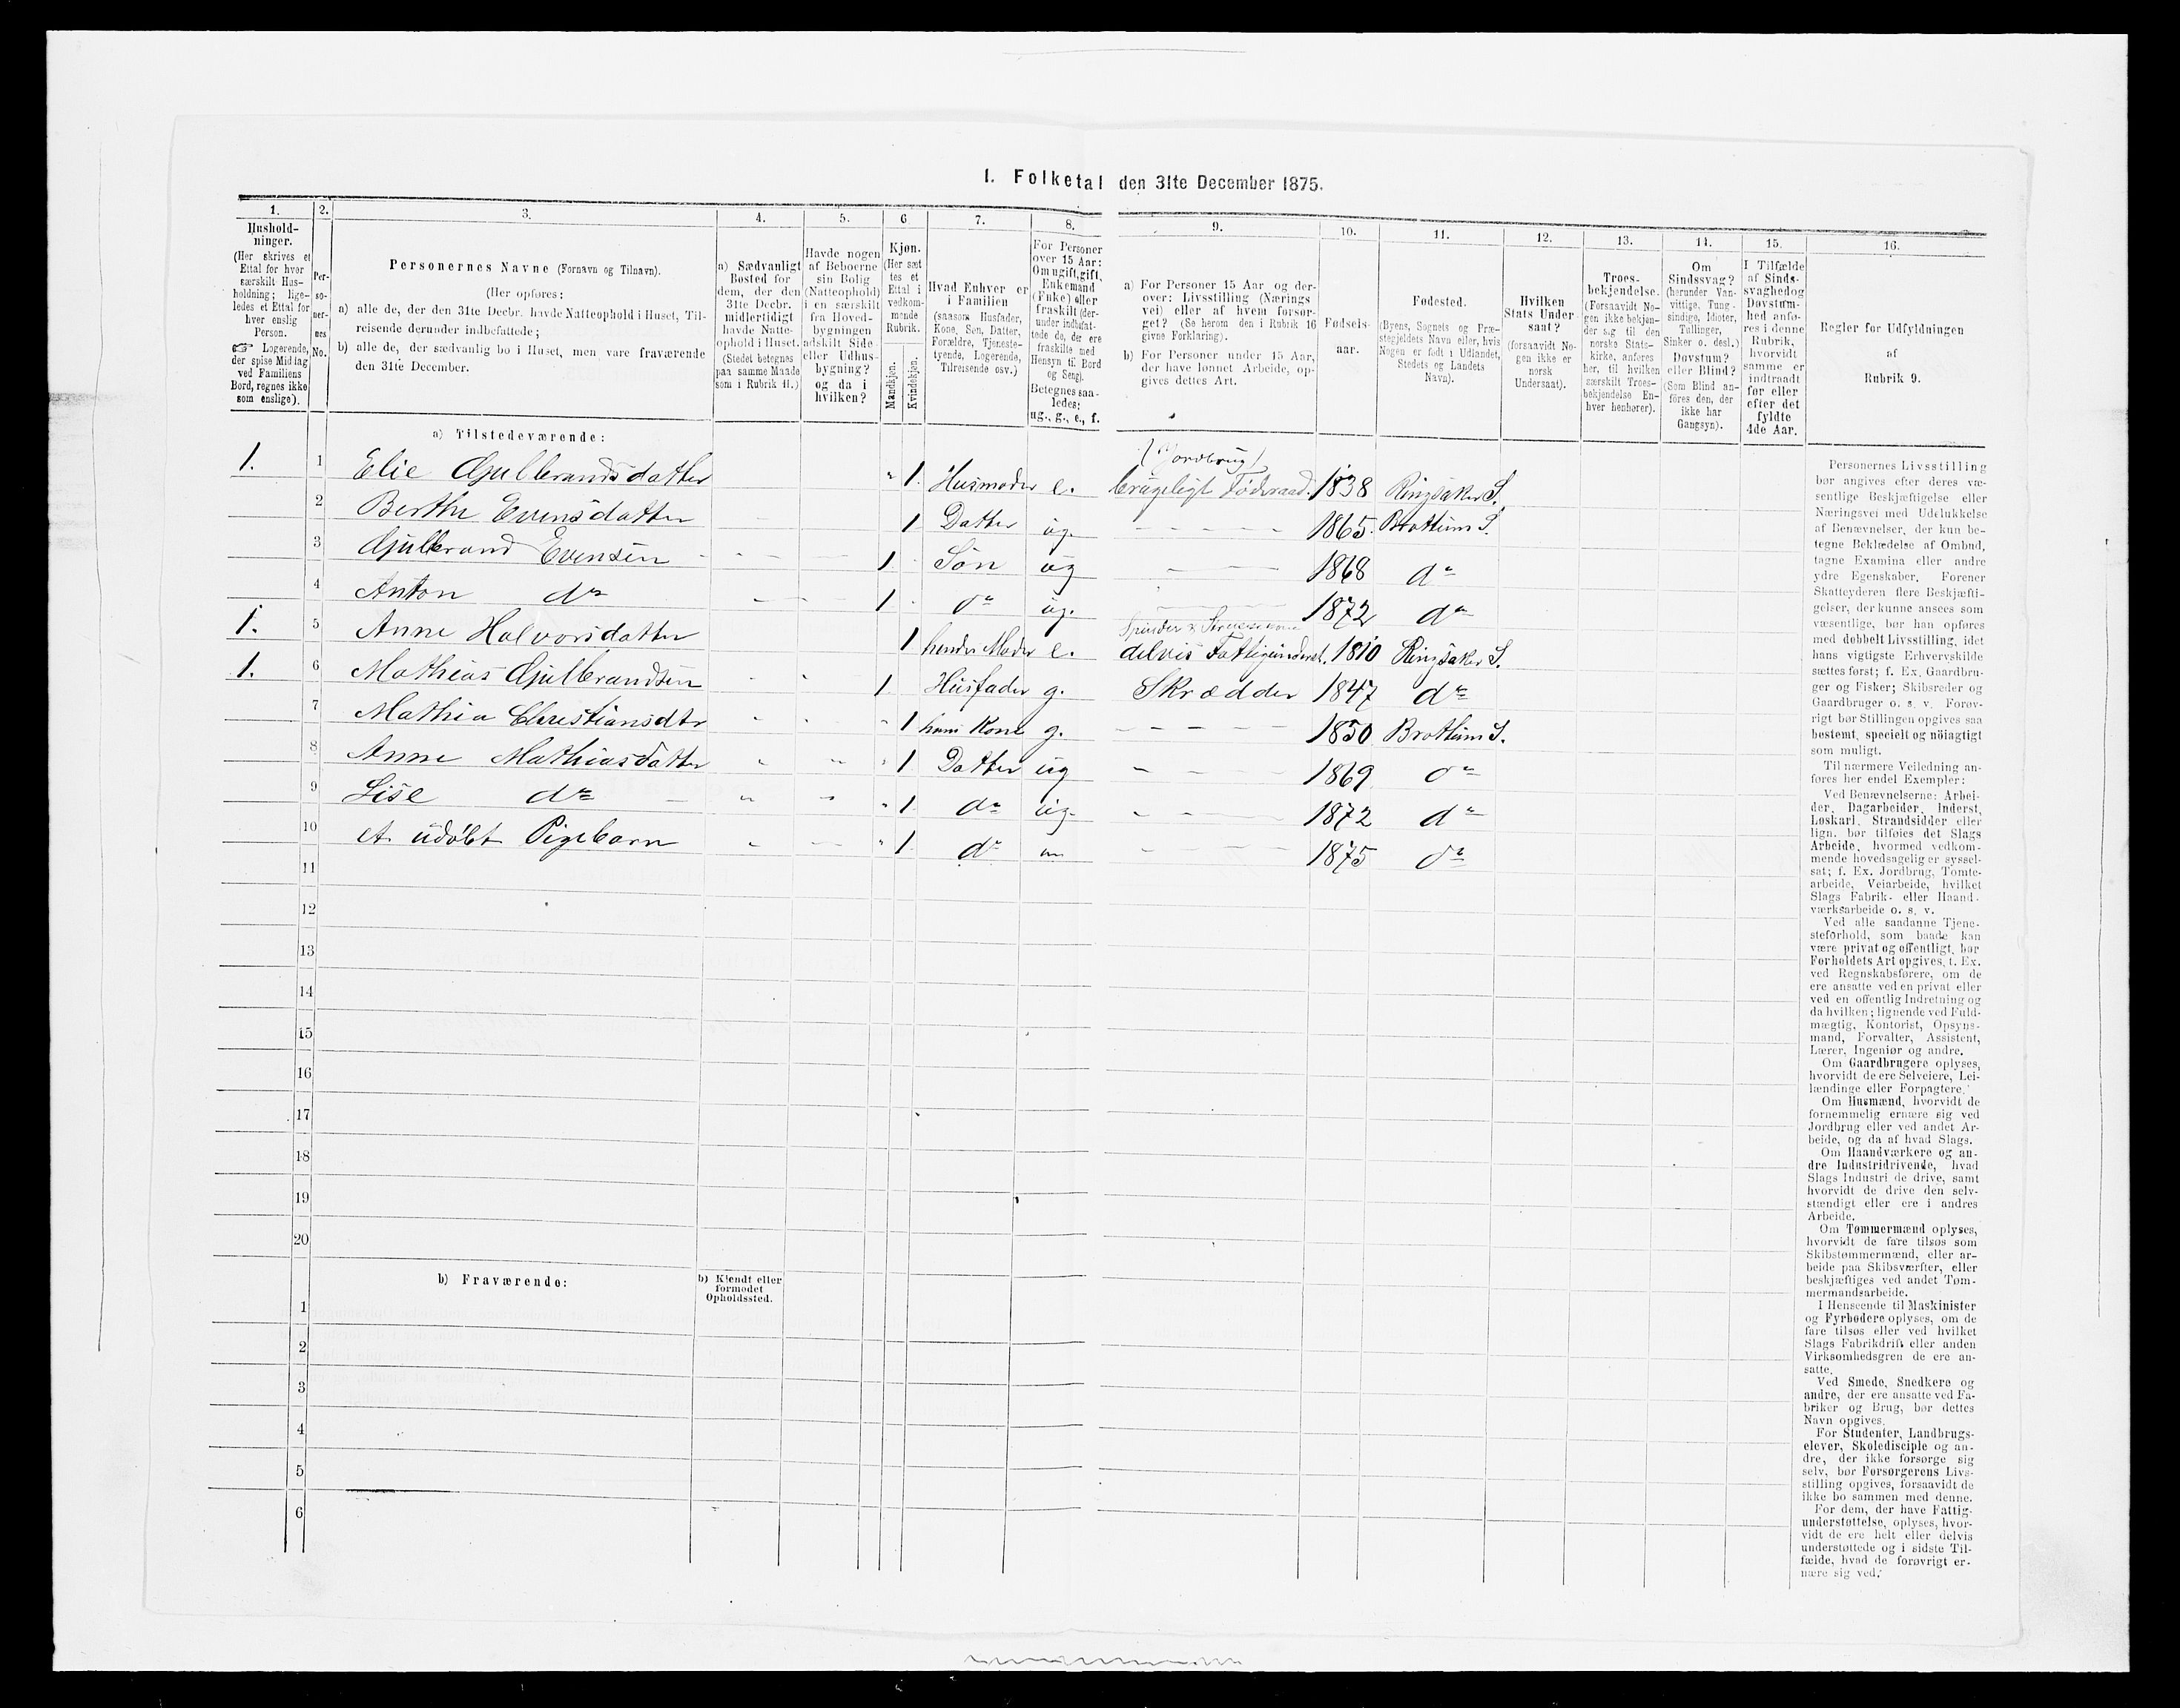 1. Folketal den 31te December 1875.
1. 2. 3. 4. 5. 6 7. 8. 9. 10. 11. 12. 13. 14. 15. 16.
Hushold-
ninger.
(Her skrives et
Ettal for hver
særskilt Hus-
holdning; lige-
ledes et Ettal for
hver enslig
Person.
☞ Logerende,
der spise Middag
ved Familiens
Bord, regnes ikke
som enslige).
Per-
so-
ner-
nes
No.
Personernes Navne (Fornavn og Tilnavn).
(Her opføres:
a) alle de, der den 31te Decbr. havde Natteophold i Huset, Til-
reisende derunder indbefattede;
b) alle de, der sædvanlig bo i Huset, men vare fraværende
den 31te December.
a) Sædvanligt
Bosted for
dem, der den
31te Decbr.
midlertidigt
havde Natte-
ophold i Huset.
(Stedet betegnes
paa samme Maade
som i Rubrik 11.)
Havde nogen
af Beboerne
sin Bolig
(Natteophold)
i en særskilt
fra Hoved-
bygningen
adskilt Side-
eller Udhus-
bygning?
og da i
hvilken?
Kjøn.
(Her sæt
tes et
Ettal i
vedkom-
mende
Rubrik.
Mandkjøn.
Kvindekjøn.
Hvad Enhver er
i Familien
(saasom Husfader,
Kone, Søn, Datter,
Forældre, Tjeneste-
tyende, Logerende,
Tilreisende osv.)
For Personer
over 15 Aar:
Om ugift, gift,
Enkemand
(Enke) eller
fraskilt (der-
under indbefat-
tede de, der ere
fraskilte med
Hensyn til Bord
og Seng).
Betegnes saa-
ledes:
ug., g., e., f.
a) For Personer 15 Aar og der-
over: Livsstilling (Nærings
vei) eller af hvem forsør-
get? (Se herom den i Rubrik 16
givne Forklaring).
b) For Personer under 15 Aar,
der have lønnet Arbeide, op-
gives dettes Art.
Fødsels-
aar.
Fødested.
(Byens, Sognets og Præ-
stegjeldets Navn eller, hvis
Nogen er født i Udlandet,
Stedets og Landets
Navn).
Hvilken
Stats Under
saat?
(forsaavidt No-
gen ikke er
norsk
Undersaat).
Troes-
bekjendelse.
(Forsaavidt No-
gen ikke bekjen-
der sig til den
norske Stats-
kirke, anføres
her, til hvilken
særskilt Troes-
bekjendelse En-
hver henhører).
Om
Sindssvag?
(herunder Van-
vittige, Tung-
sindige, Idioter,
Tullinger,
Sinker o. desl.)
Døvstum?
eller Blind?
(Som Blind an-
føres den, der
ikke har
Gangsyn).
I Tilfælde
af Sinds-
svaghedog
Døvstum-
hed anfø-
res i denne
Rubrik,
hvorvidt
samme er
indtraadt
før eller
efter det
fyldte
4de Aar.
Regler for Udfyldningen
af
Rubrik 9.
a) Tilstedeværende:
(Jordbrug)
1. 1 Elie Gulbrandsdatter 1. Husmoder e. Føderaad. 1838 Ringsaker S.
2 Berthe Evensdatter 1 Datter ug. 1865. Brøttum S.
3 Gulbrand Evensen 1 Søn ug 1868 do
4 Anton do 1 do ug. 1872 do
1. 5 Anne Halvorsdatter 1 hendes Moder e. delvis Fattigunderst. 1810 Ringsaker S.
1. 6 Mathias Gulbrandsen 1 Husfader g. Skrædder 1847 do
7 Mathia Christiansdtr 1 hans Kone g. 1850 Brøttum S.
8 Anne Mathiasdatter 1 Datter ug 1869 do
9 Lise do 1 do ug. 1872 do
10 et udøbt Pigebarn 1 do 1875 do
11
12
13
14
15
16
17
18
19
20
b) Fraværende:
b) Kjendt eller
formodet
Opholdssted.
1
2
3
4
5
6
Personernes Livsstilling
bør angives efter deres væ-
sentlige Beskjæftigelse eller
Næringsvei med Udelukkelse
af Benævnelser, der kun be-
tegne Beklædelse af Ombud,
tagne Examina eller andre
ydre Egenskaber. Forener
Skatteyderen flere Beskjæfti-
gelser, der kunne ansees som
væsentlige, bør han opføres
med dobbelt Livsstilling, idet
hans vigtigste Erhvervskilde
sættes først; f. Ex. Gaardbru-
ger og Fisker; Skibsreder og
Gaardbruger o. s. v. Forøv-
rigt bør Stillingen opgives saa
bestemt, specielt og nöiagtigt
som muligt.
Til nærmere Veiledning an-
føres her endel Exempler:
Ved Benævnelserne: Arbei-
der, Dagarbeider, Inderst,
Løskarl, Strandsidder eller
lign. bør tilføies det Slags
Arbeide, hvormed vedkom-
mende hovedsagelig er syssel-
sat; f. Ex. Jordbrug, Tomte-
arbeide, Veiarbeide, hvilket
Slags Fabrik- eller Haand-
værksarbeide o. s. v.
Ved alle saadanne Tjene-
steforhold, som baade kan
være privat og offentligt, bør
Forholdets Art opgives, t. Ex.
ved Regnskabsførere, om de
ere ansatte ved en privat eller
ved en offentlig Indretning og
da hvilken; lignende ved Fuld-
mægtig, Kontorist, Opsyns-
mand, Forvalter, Assistent,
Lærer, Ingeniør og andre.
Om Gaardbrugere oplyses,
hvorvidt de ere Selveiere, Lei-
lændinge eller Forpagtere.
Om Husmænd, hvorvidt de
fornemmelig ernære sig ved
Jordbrug eller ved andet Ar-
beide, og da af hvad Slags.
Om Haandværkere og an-
dre Industridrivende, hvad
Slags Industri de drive, samt
hvorvidt de drive den selv-
stændigt eller ere i andres
Arbeide.
Om Tømmermænd oplyses,
hvorvidt de fare tilsøs som
Skibstømmermænd, eller ar-
beide paa Skibsværfter, eller
beskjæftiges ved andet Tøm-
mermandsarbeide.
I Henseende til Maskinister
og Fyrbødere oplyses, om de
fare tilsøs eller ved hvilket
Slags Fabrikdrift eller anden
Virksomhedsgren de ere an-
satte.
Ved Smede, Snedkere og
andre, der ere ansatte ved Fa-
briker og Brug, bør dettes
Navn opgives.
For Studenter, Landbrugs-
elever, Skoledisciple og an-
dre, der ikke forsørge sig
selv, bør Forsørgerens Livs-
stilling opgives, forsaavidt de
ikke bo sammen med denne.
For dem, der have Fattig-
understøttelse, oplyses, hvor-
vidt de ere helt eller delvis
understøttede og i sidste Til-
fælde, hvad de forøvrigt er-
nære sig ved.